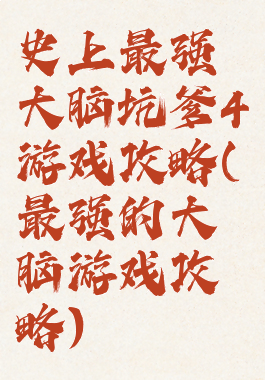 史上最强
大脑坑爹4
游戏攻略(
最强的大
脑游戏攻
略)